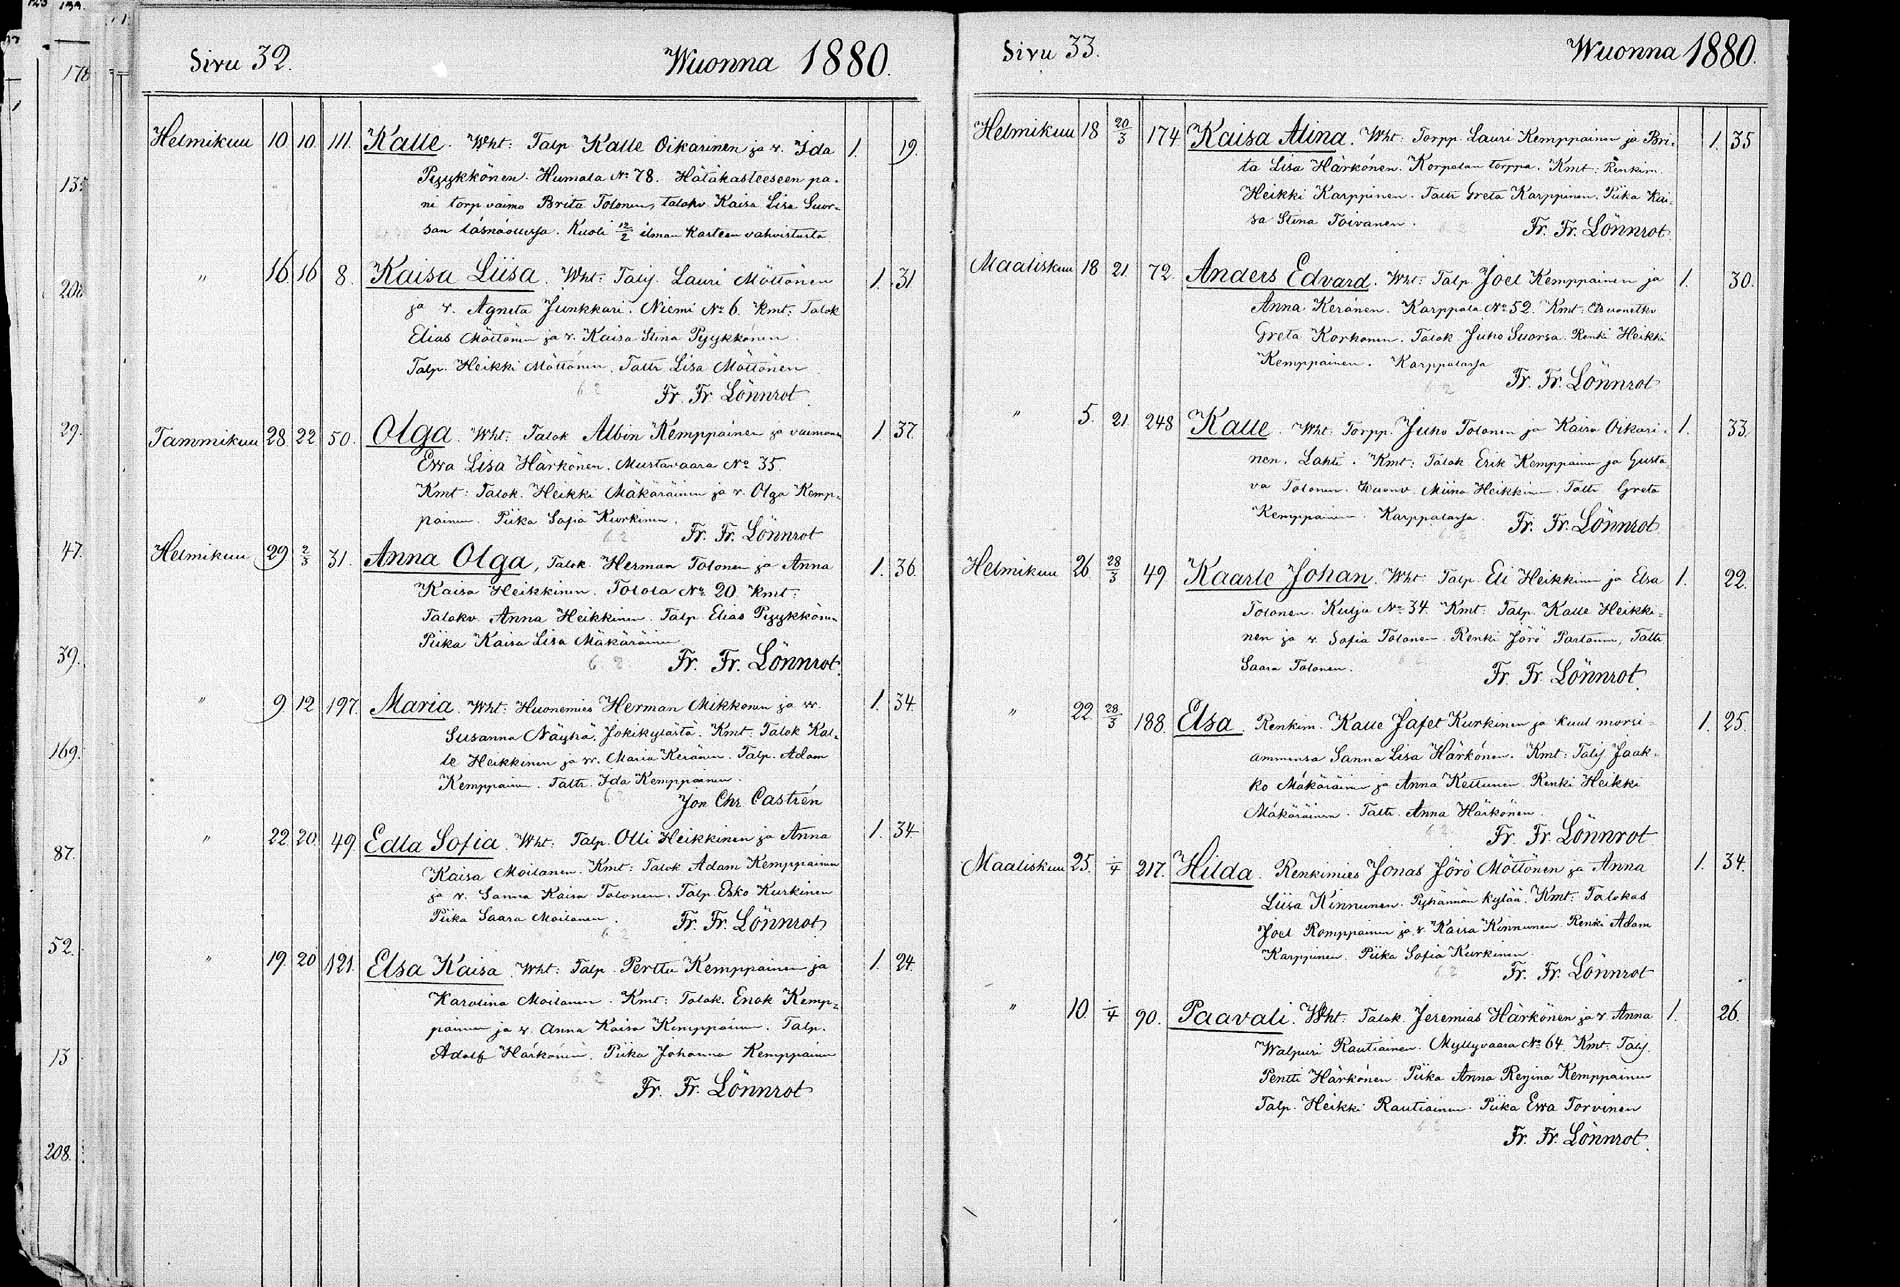 Sivu 32. Wuonna 1880.
Helmikuu 10 10 111. Kalle. Wht: Talp Kalle Oikarinen ja v. Ida 1. 19.
Pyykkönen. Humala No 78. Hätäkasteeseen pa-
ni torp. vaimo Brita Tolonen, talokv. Kaisa Lisa Suor-
san läsnäollessa. Kuoli 12/2 ilman kasteen vahvistusta
" 16. 16 8. Kaisa Liisa. Wht: Talij. Lauri Möttönen 1. 31
ja v. Agneta Junkkari. Niemi No 6. Kmt: Talok
Elias Möttönen ja v. Kaisa Stina Pyykkönen.
Talp. Heikki Möttönen. Taltr Lisa Möttönen
Fr. Fr. Lönnrot.
Tammikuu 28 22 50. Olga. Wht: Talok Albin Kemppainen ja vaimonsa 1. 37.
Ewa Lisa Härkönen. Mustavaara No 35.
Kmt: Talok. Heikki Mäkäräinen ja v. Olga Kemp-
painen. Piika Sofia Kurkinen.
Fr. Fr. Lönnrot
Helmikuu 29 2/3 31. Anna Olga, Talok. Herman Tolonen ja Anna 1. 36.
Kaisa Heikkinen. Tolola No 20. Kmt:
Talokv. Anna Heikkinen. Talp. Elias Pyykkönen
Piika Kaisa Lisa Mäkäräinen
Fr. Fr. Lönnrot.
" 9 12 197. Maria. Wht: Huonemies Herman Mikkonen ja v. 1. 34.
Susanna Näyhä, Jokikylästä. Kmt. Talok Kal-
le Heikkinen ja v. Maria Keränen. Talp. Adam
Kemppainen. Taltr. Ida Kemppainen.
Jon Chr. Castrén
" 22. 20. 49. Edla Sofia. Wht: Talp. Olli Heikkinen ja Anna 1. 34.
Kaisa Moilanen. Kmt: Talok Adam Kemppainen
ja v. Sanna Kaisa Tolonen. Talp. Esko Kurkinen
Piika Saara Moilanen.
Fr. Fr. Lönnrot
" 19. 20 121. Elsa Kaisa. Wht: Talp. Perttu Kemppainen ja 1. 24.
Karolina Moilanen. Kmt: Talok. Enok Kemp-
painen ja v. Anna Kaisa Kemppainen. Talp.
Adolf Härkönen. Piika Johanna Kemppainen
Fr. Fr. Lönnrot
178
135
208
29.
47.
39.
169.
87.
52.
13
208.
Sivu 33. Wuonna 1880.
Helmikuu 18 20/3 174 Kaisa Alina. Wht: Torpp. Lauri Kemppainen ja Bri- 1. 35
ta Lisa Härkönen. Korpolan torppa. Kmt: Renkim.
Heikki Karppinen. Taltr Greta Karppinen. Piika Kai-
sa Stina Toivanen.
Fr. Fr. Lönnrot.
Maaliskuu 18 21. 72. Anders Edvard. Wht: Talp. Joel Kemppainen ja 1. 30.
Anna Keränen. Karppala No 52. Kmt:
Greta Korhonen. Talok Juho Suorsa. Renki Heikki
Kemppainen. Karppalassa
Fr. Fr. Lönnrot
" 5. 21 248 Kalle. Wht: Torpp. Juho Tolonen ja Kaisa Oikari- 1. 33.
nen. Lahti. Kmt: Talok Erik Kemppainen ja Gusta-
va Tolonen. Huonv. Miina Heikkinen. Taltr Greta
Kemppainen. Karppalassa.
Fr. Fr. Lönnrot
Helmikuu 26 28/3 49 Kaarle Johan. Wht: Talp. Eli Heikkinen ja Elsa 1. 22.
Tolonen. Kulju No 34. Kmt. Talp. Kalle Heikki-
nen ja v. Sofia Tolonen. Renki Jörö Partanen, Taltr
Saara Tolonen.
Fr. Fr. Lönnrot.
" 22. 28/3 188. Elsa. Renkim. Kalle Jafet Kurkinen ja kuul. morsi- 1. 25.
ammensa Sanna Lisa Härkönen. Kmt: Talij Jaak-
ko Mäkäräinen ja Anna Kettunen. Renki Heikki
Mäkäräinen. Taltr. Anna Härkönen.
Fr. Fr. Lönnrot
Maaliskuu 25. 1/4 217. Hilda. Renkimies Jonas Jörö Möttönen ja Anna 1. 34.
Liisa Kinnunen. Pyhännän kylää. Kmt: Talokas
Joel Romppainen ja v. Kaisa Kinnunen. Renki Adam
Karppinen. Piika Sofia Kurkinen
Fr. Fr. Lönnrot
" 10. 1/4 90. Paavali. Wht: Talok. Jeremias Härkönen ja v. Anna 1. 26.
Walpuri Rautiainen. Myllyvaara No 64. Kmt: Talij.
Pentti Härkönen. Piika Anna Regina Kemppainen
Talp. Heikki Rautiainen. Piika Ewa Torvinen
Fr. Fr. Lönnrot.